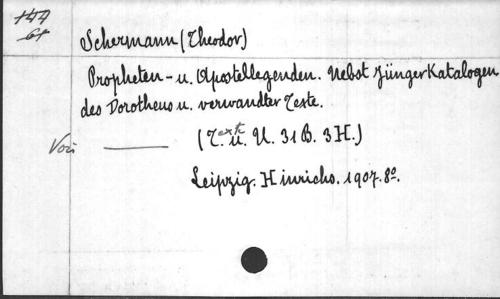 144
61
Schermann (Theodor)
Propheten- u. Apostellegenden. Nebst JüngerKatalogen
des Dorotheus u. verwandter Texte.
Voir ——— (Texte u. U. 31 B. 3 H.)
Leipzig. Hinrichs. 1907. 8º.